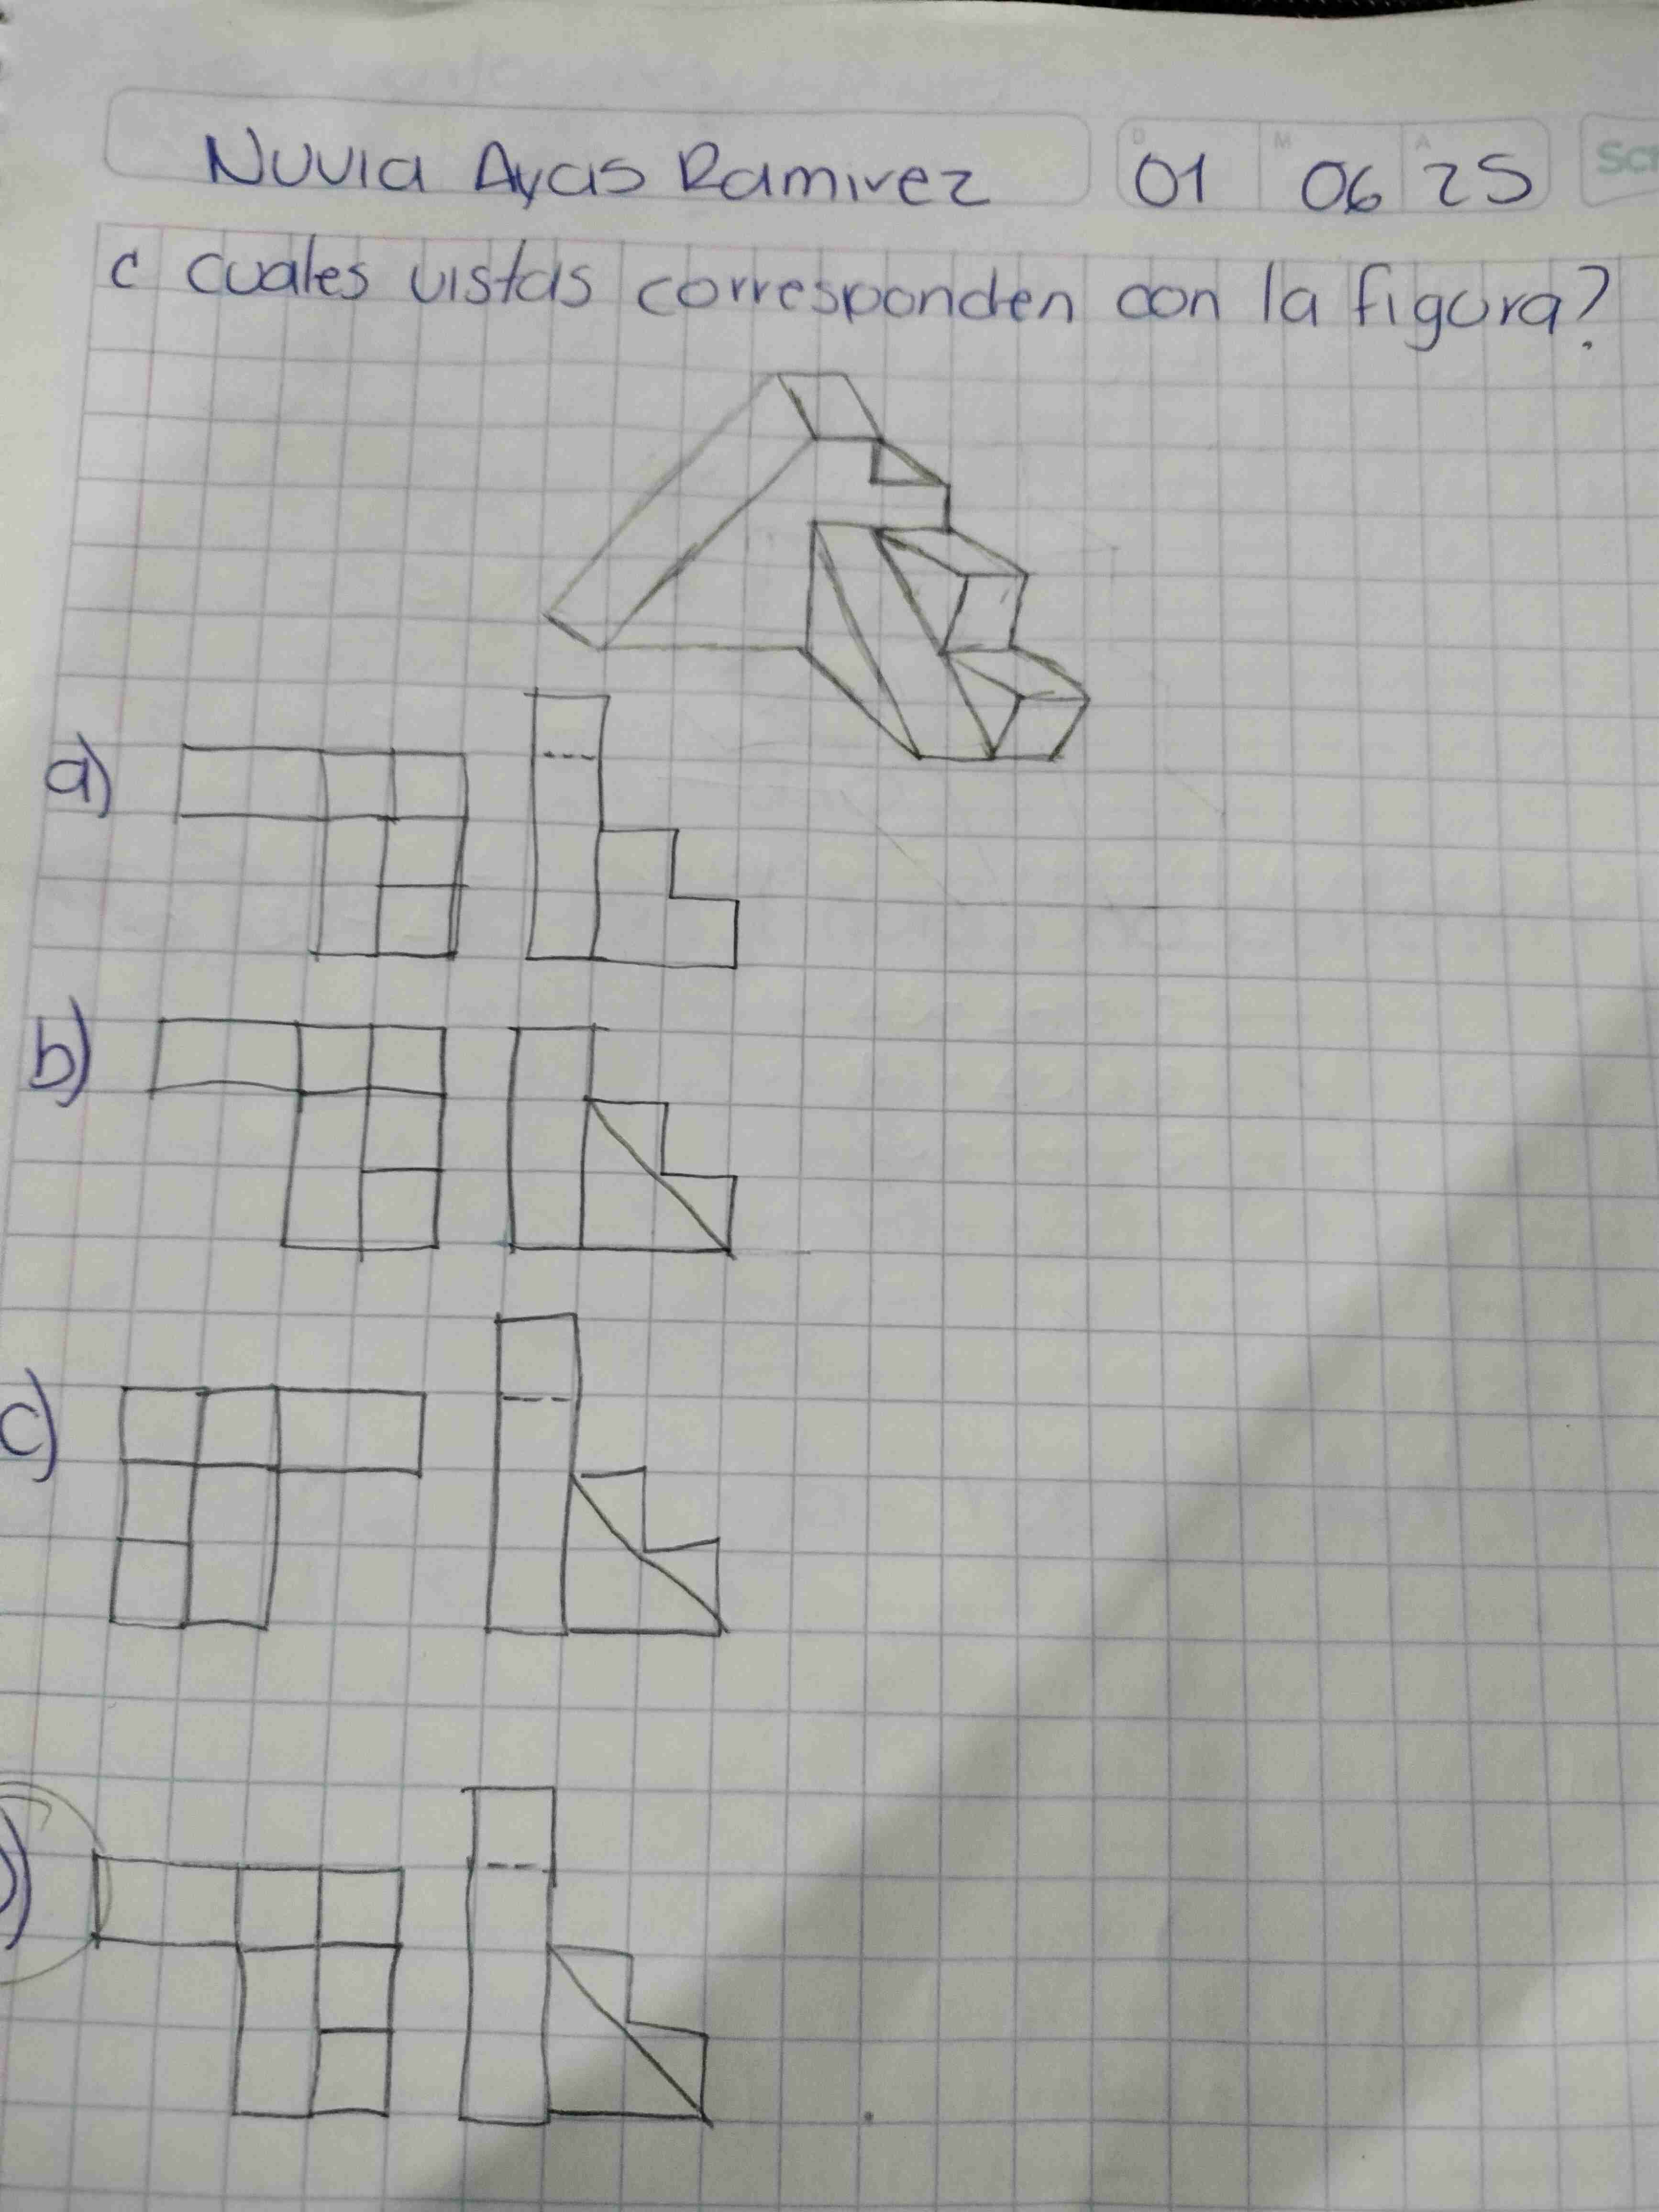 Nuvia Ayas Ramirez 01 06 25
D M A
Scr
c cuales vistas corresponden con la figura?
a)
b)
c)